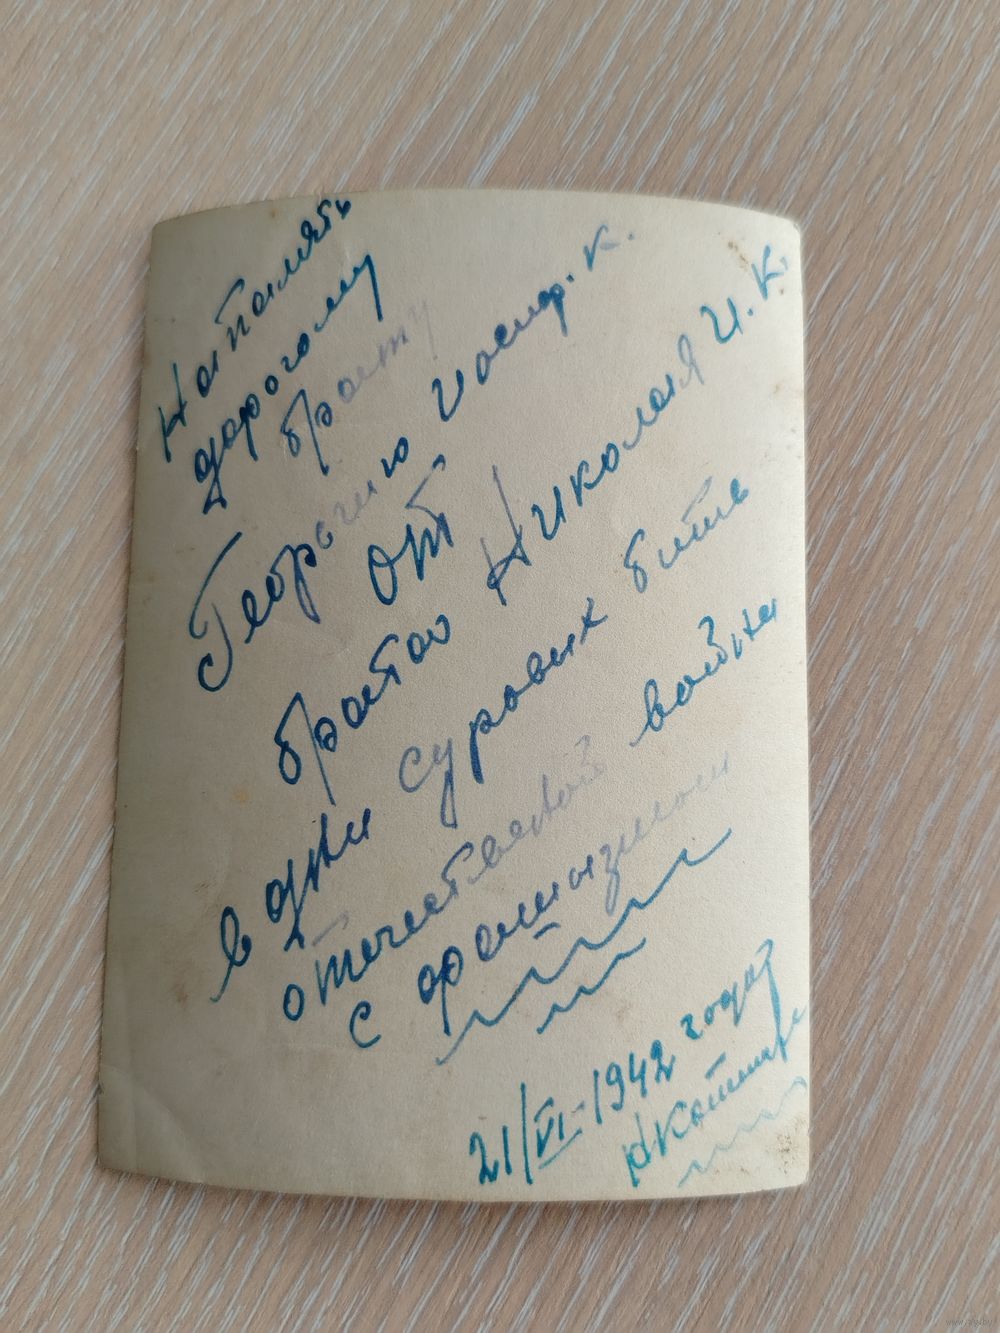 На память
дорогому
брату
Георгию Иосиф. К.
от
брата Николая И. К.
в дни суровых битв
отечественной войны
с фашизмом
21/VI-1942 года